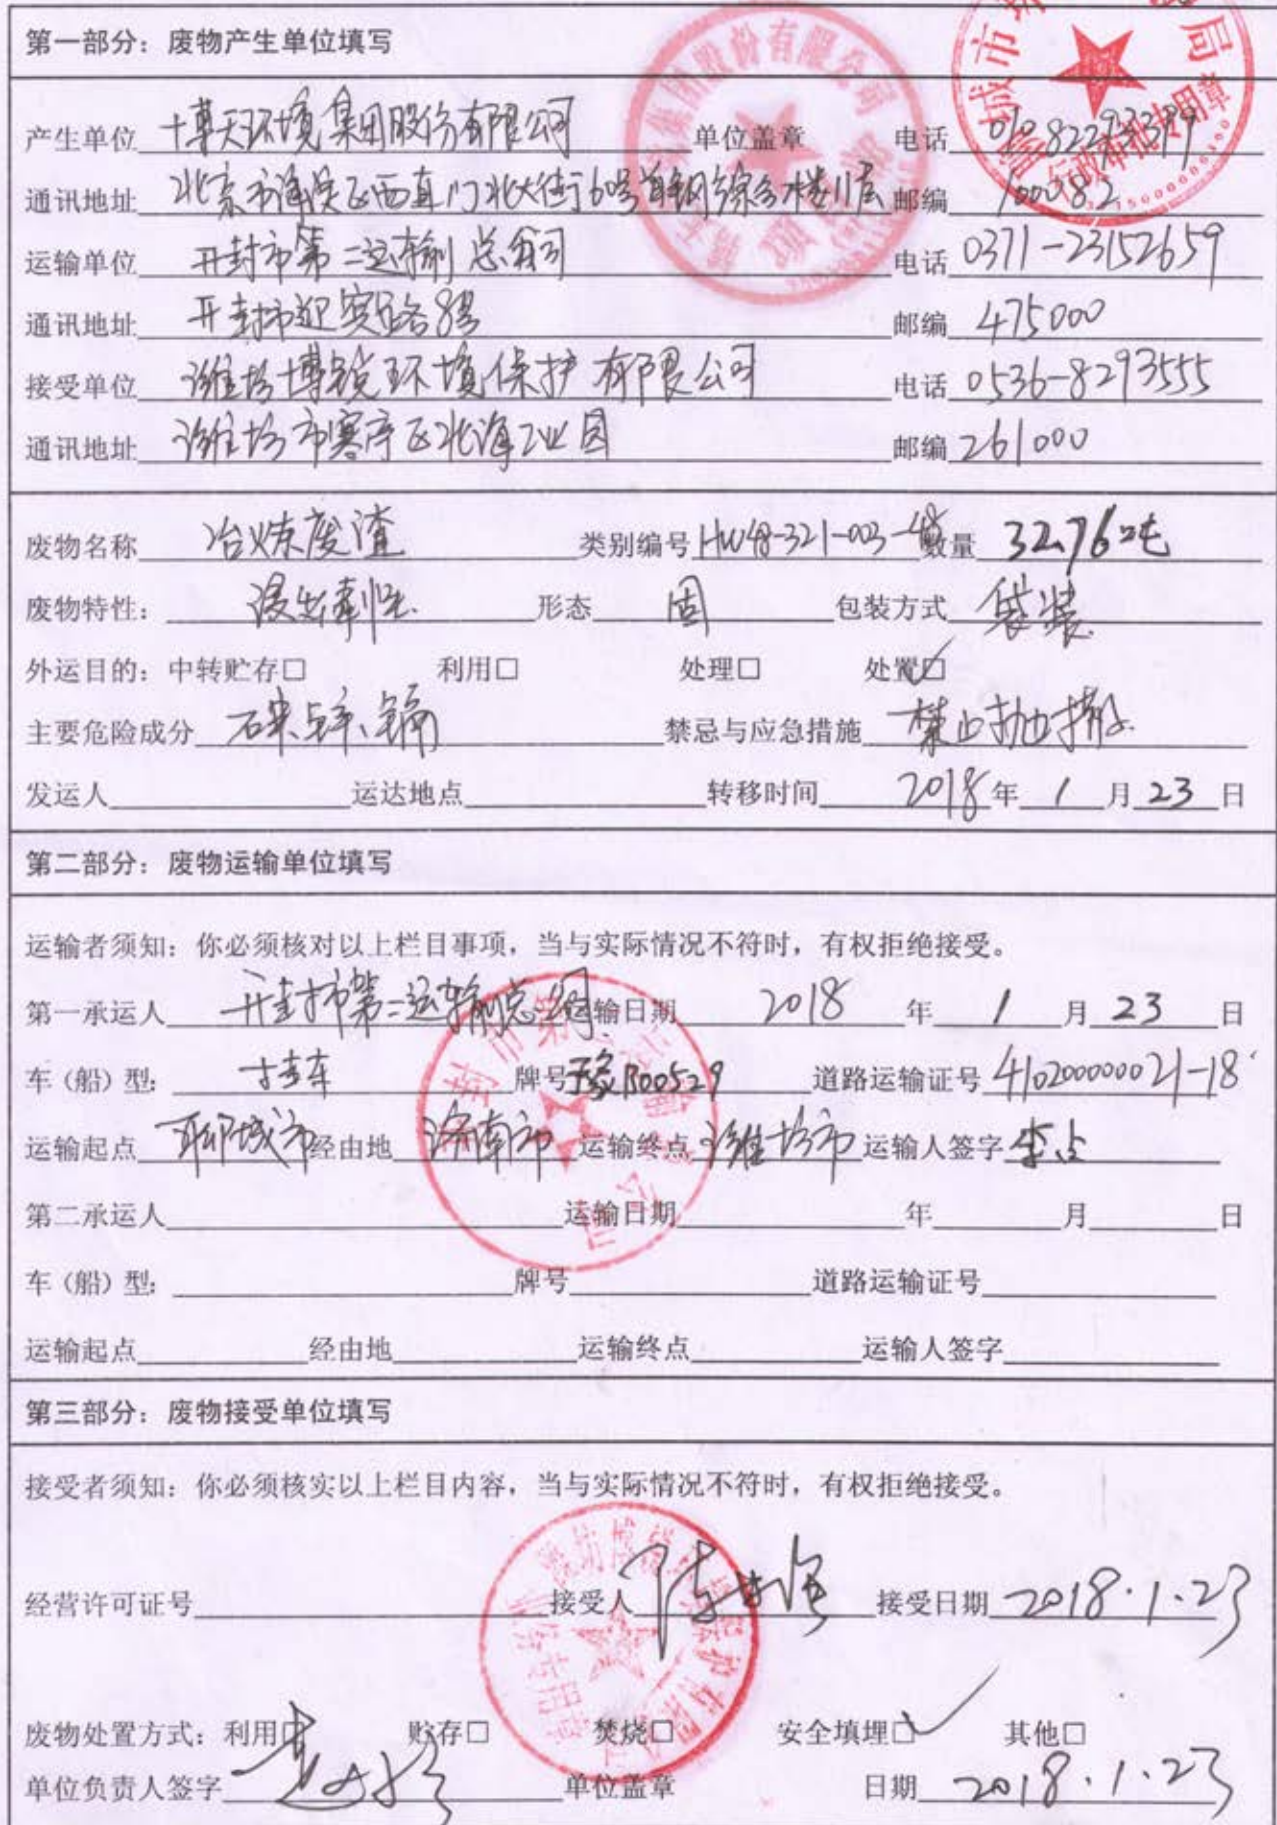 第一部分：废物产生单位填写
产生单位 博天环境集团股份有限公司 单位盖章 电话 010-82291399
通讯地址 北京市海淀区西直门北大街60号首钢综合楼11层 邮编 100082
运输单位 开封市第二运输总公司 电话 0371-23152659
通讯地址 开封市迎宾路8号 邮编 475000
接受单位 潍坊博锐环境保护有限公司 电话 0536-8293555
通讯地址 潍坊市寒亭区北海工业园 邮编 261000
废物名称 冶炼废渣 类别编号 HW48-321-003-48 数量 32.76吨
废物特性： 浸出毒性 形态 固 包装方式 袋装
外运目的：中转贮存□ 利用□ 处理□ 处置☑
主要危险成分 砷、锌、镉 禁忌与应急措施 禁止抛撒
发运人 运达地点 转移时间 2018年 1 月 23 日
第二部分：废物运输单位填写
运输者须知：你必须核对以上栏目事项，当与实际情况不符时，有权拒绝接受。
第一承运人 开封市第二运输总公司 运输日期 2018 年 1 月 23 日
车（船）型： 牌号 豫B00529 道路运输证号 410200000021-18
运输起点 聊城市 经由地 济南市 运输终点 潍坊市 运输人签字
第二承运人 运输日期 年 月 日
车（船）型： 牌号 道路运输证号
运输起点 经由地 运输终点 运输人签字
第三部分：废物接受单位填写
接受者须知：你必须核实以上栏目内容，当与实际情况不符时，有权拒绝接受。
经营许可证号 接受人 接受日期 2018.1.23
废物处置方式：利用□ 贮存□ 焚烧□ 安全填埋☑ 其他□
单位负责人签字 单位盖章 日期 2018.1.23